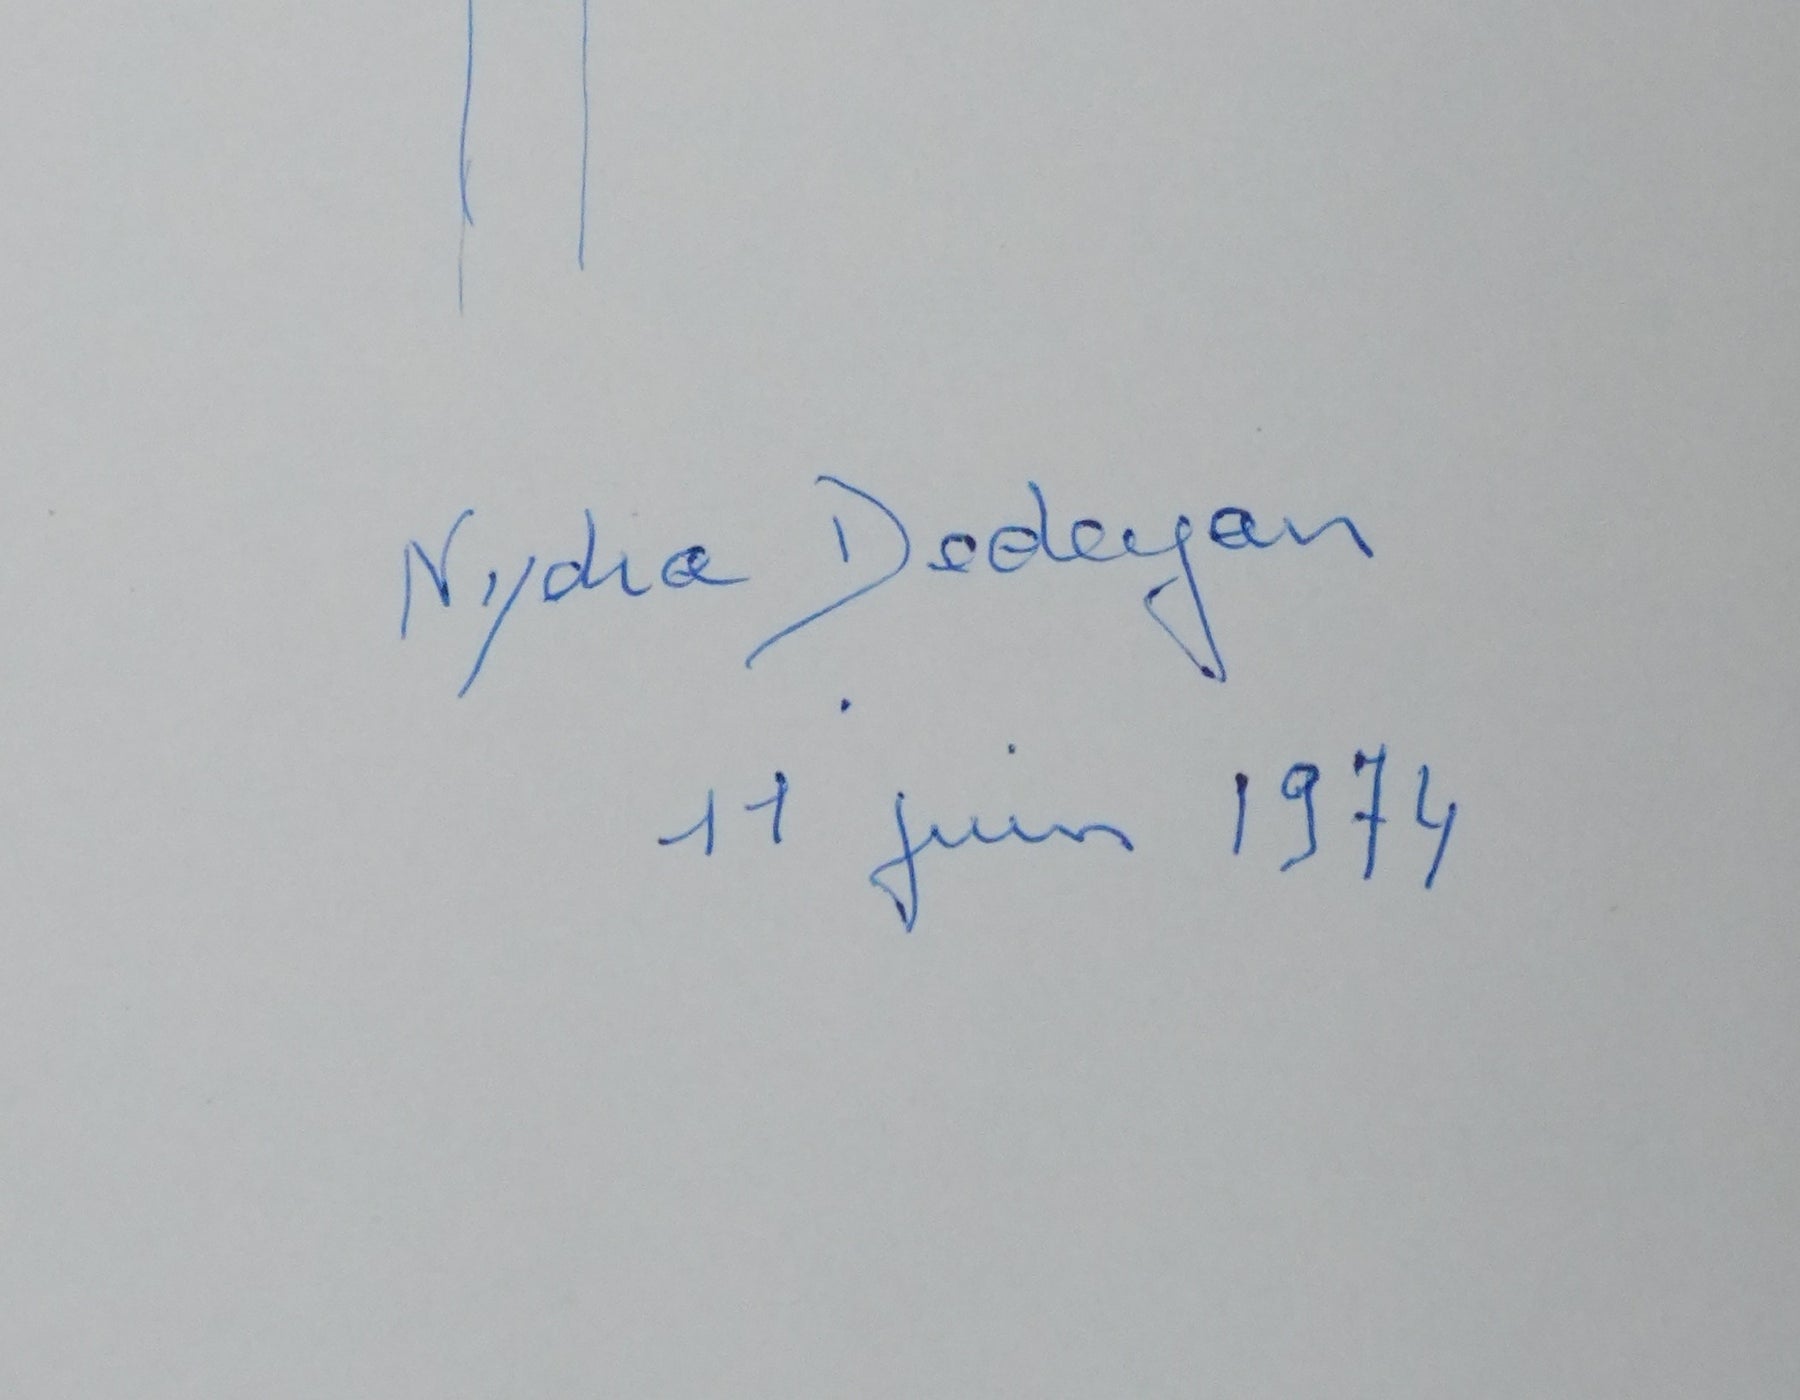 Nydia Dedeyan
11 juin 1974